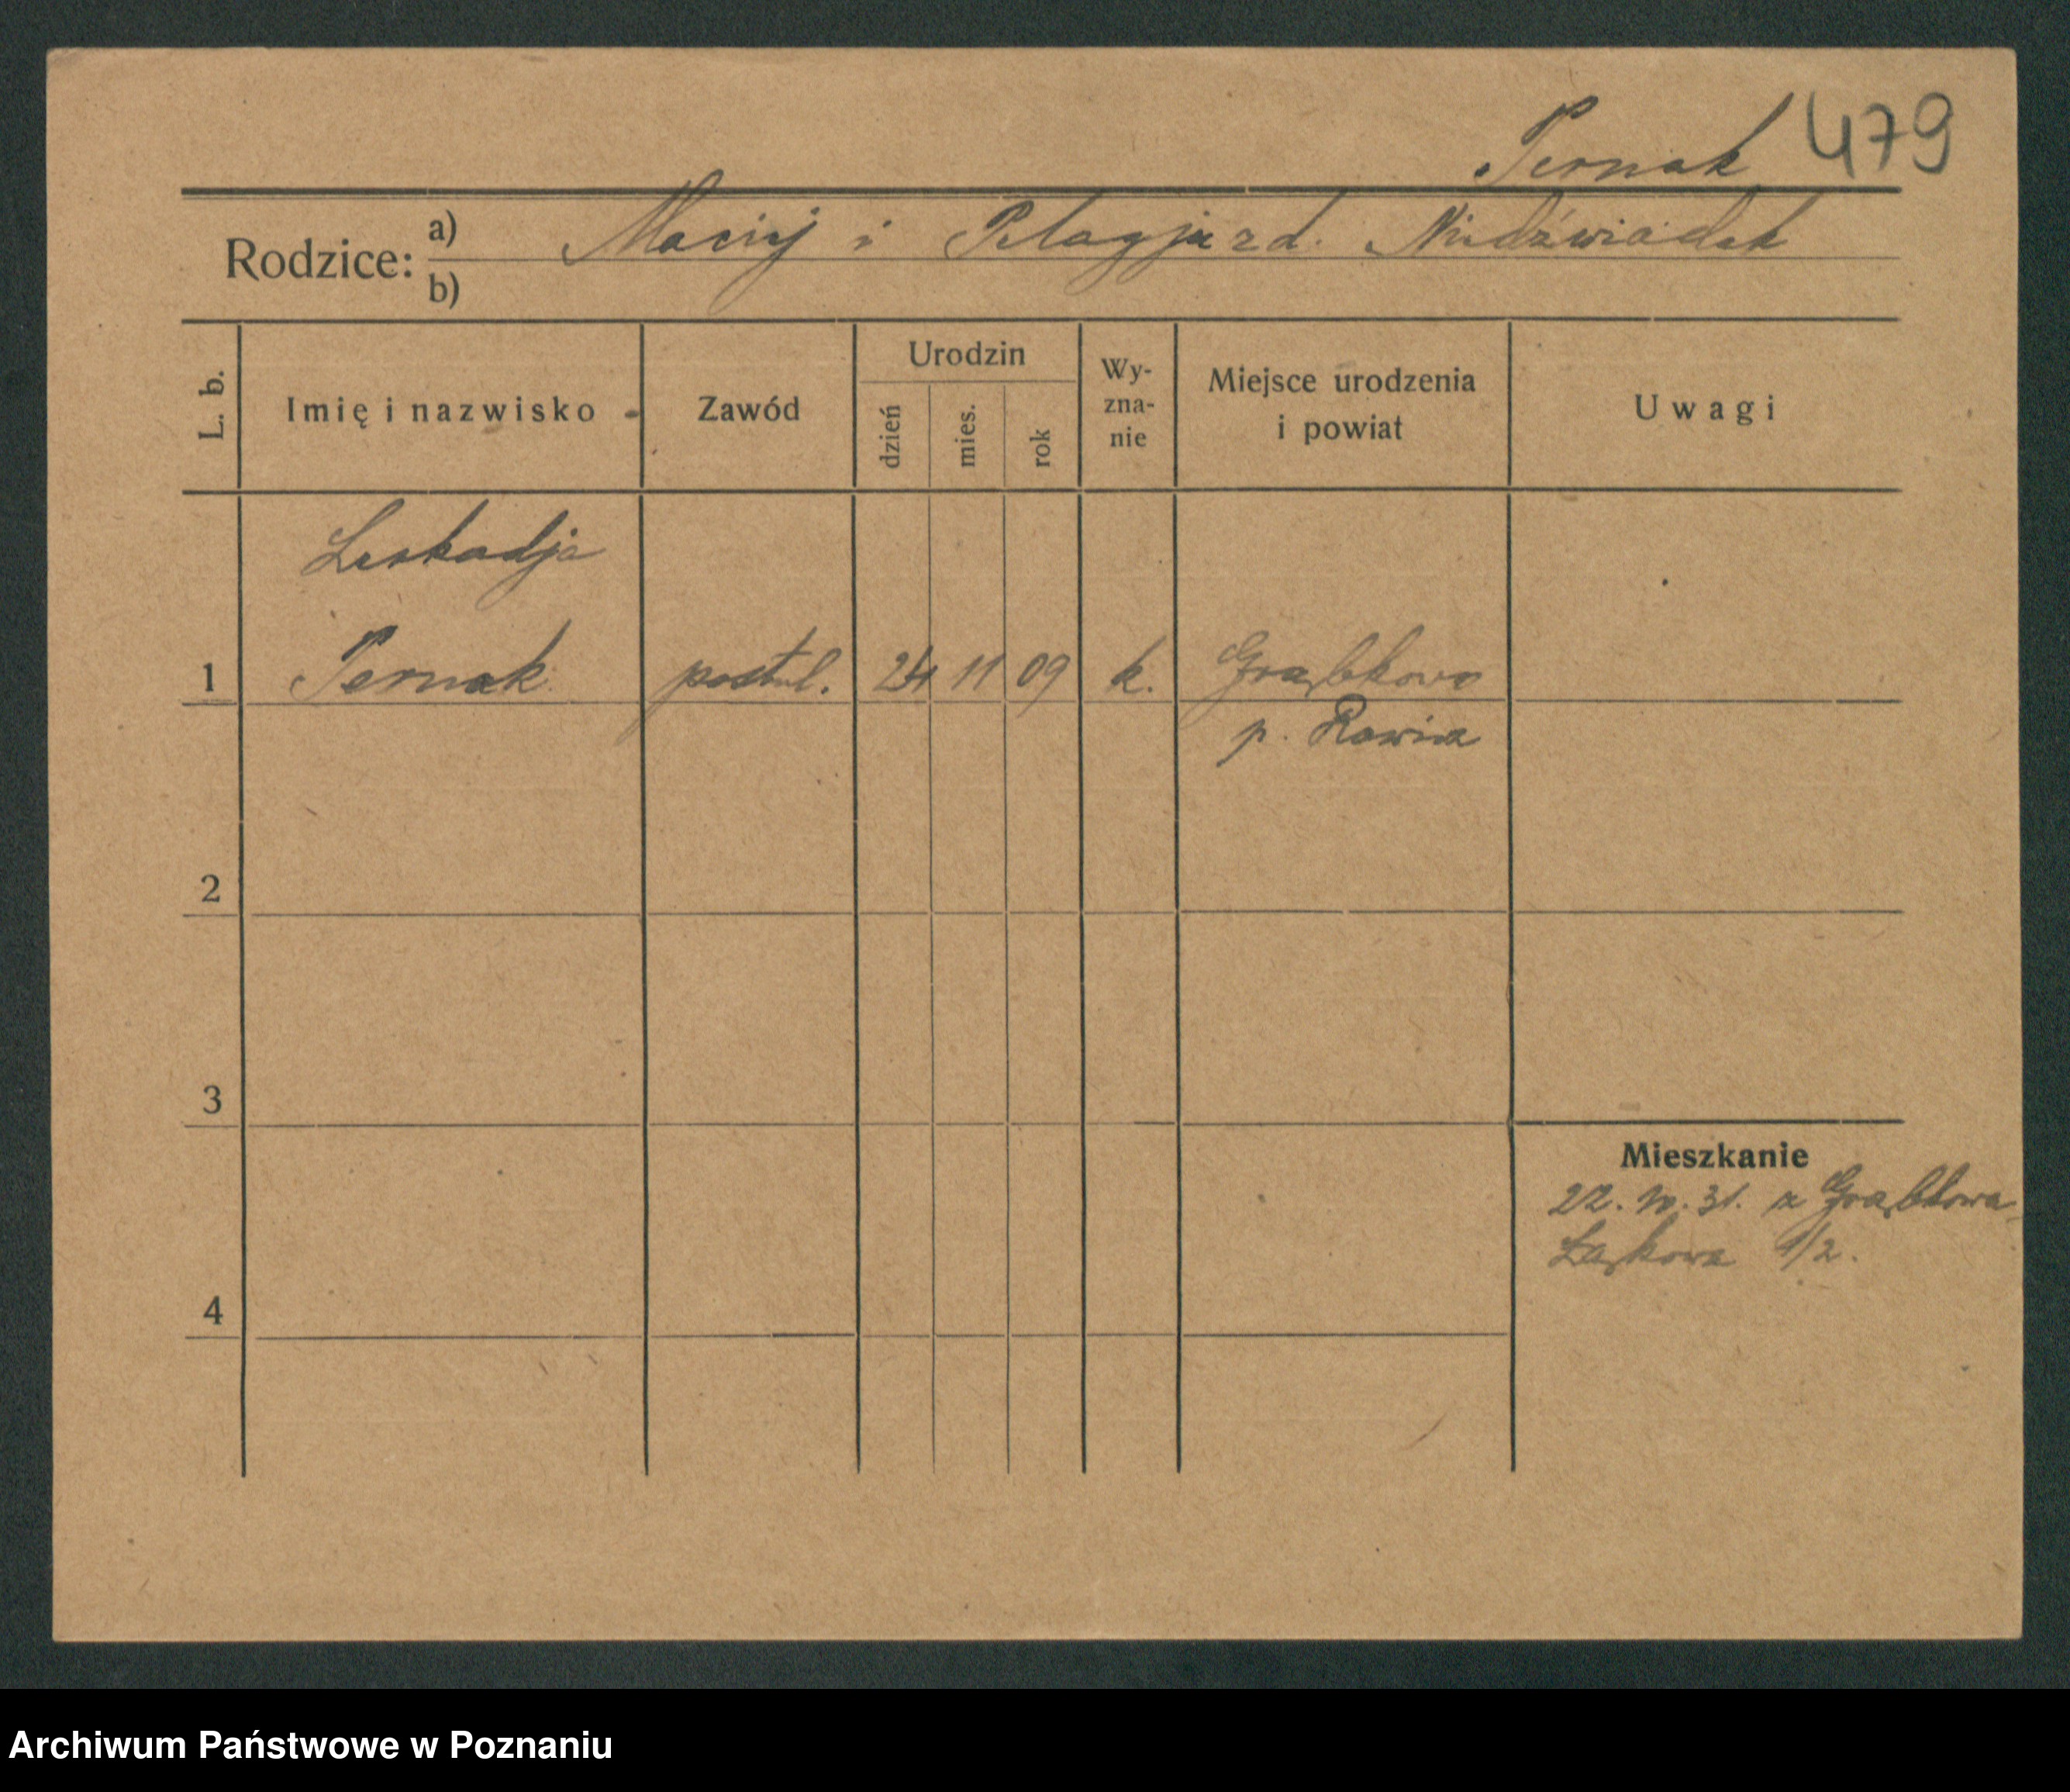 Pernak 479
Rodzice: a) Maciej i Pelagja zd. Niedźwiadek
b)
L. b. Imię i nazwisko Zawód Urodzin dzień mies. rok Wy-zna-nie Miejsce urodzenia i powiat Uwagi
Leokadja
1 Pernak postul. 24 11 09 k. Grąbkowo
p. Rawicz
2
3
Mieszkanie
22. IV. 31. z Grąbkowa
Łąkowa 1/2.
4
Archiwum Państwowe w Poznaniu